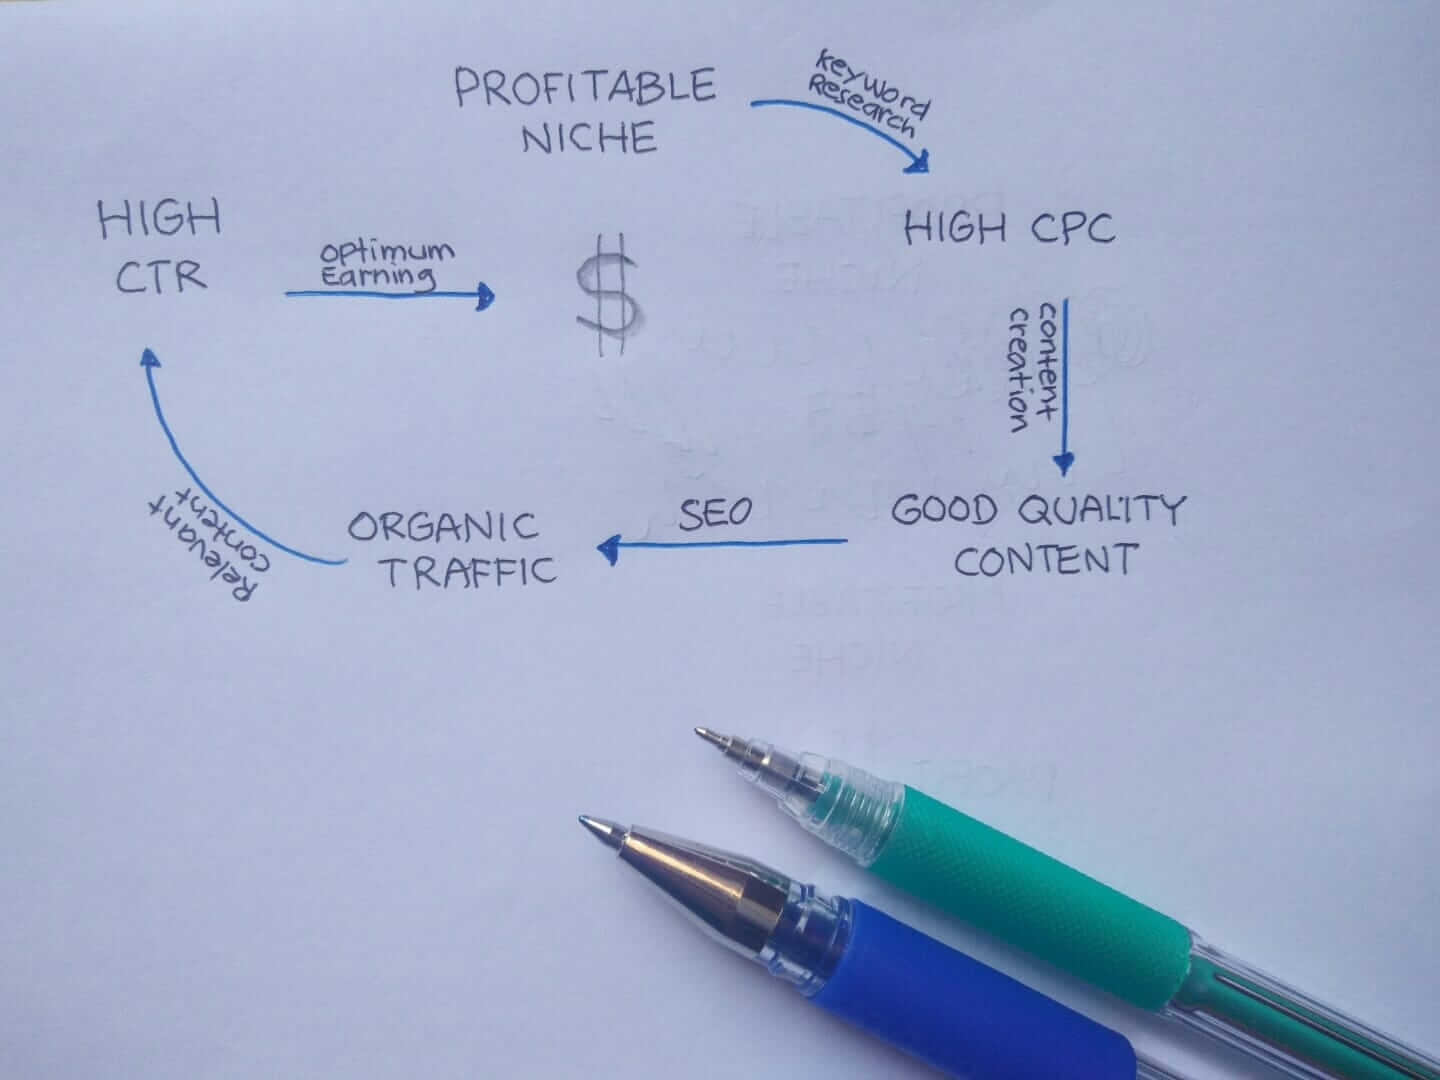 PROFITABLE
NICHE
Keyword
Research
HIGH CPC
content
creation
GOOD QUALITY
CONTENT
SEO
ORGANIC
TRAFFIC
Relevant
content
HIGH
CTR
optimum
Earning
$